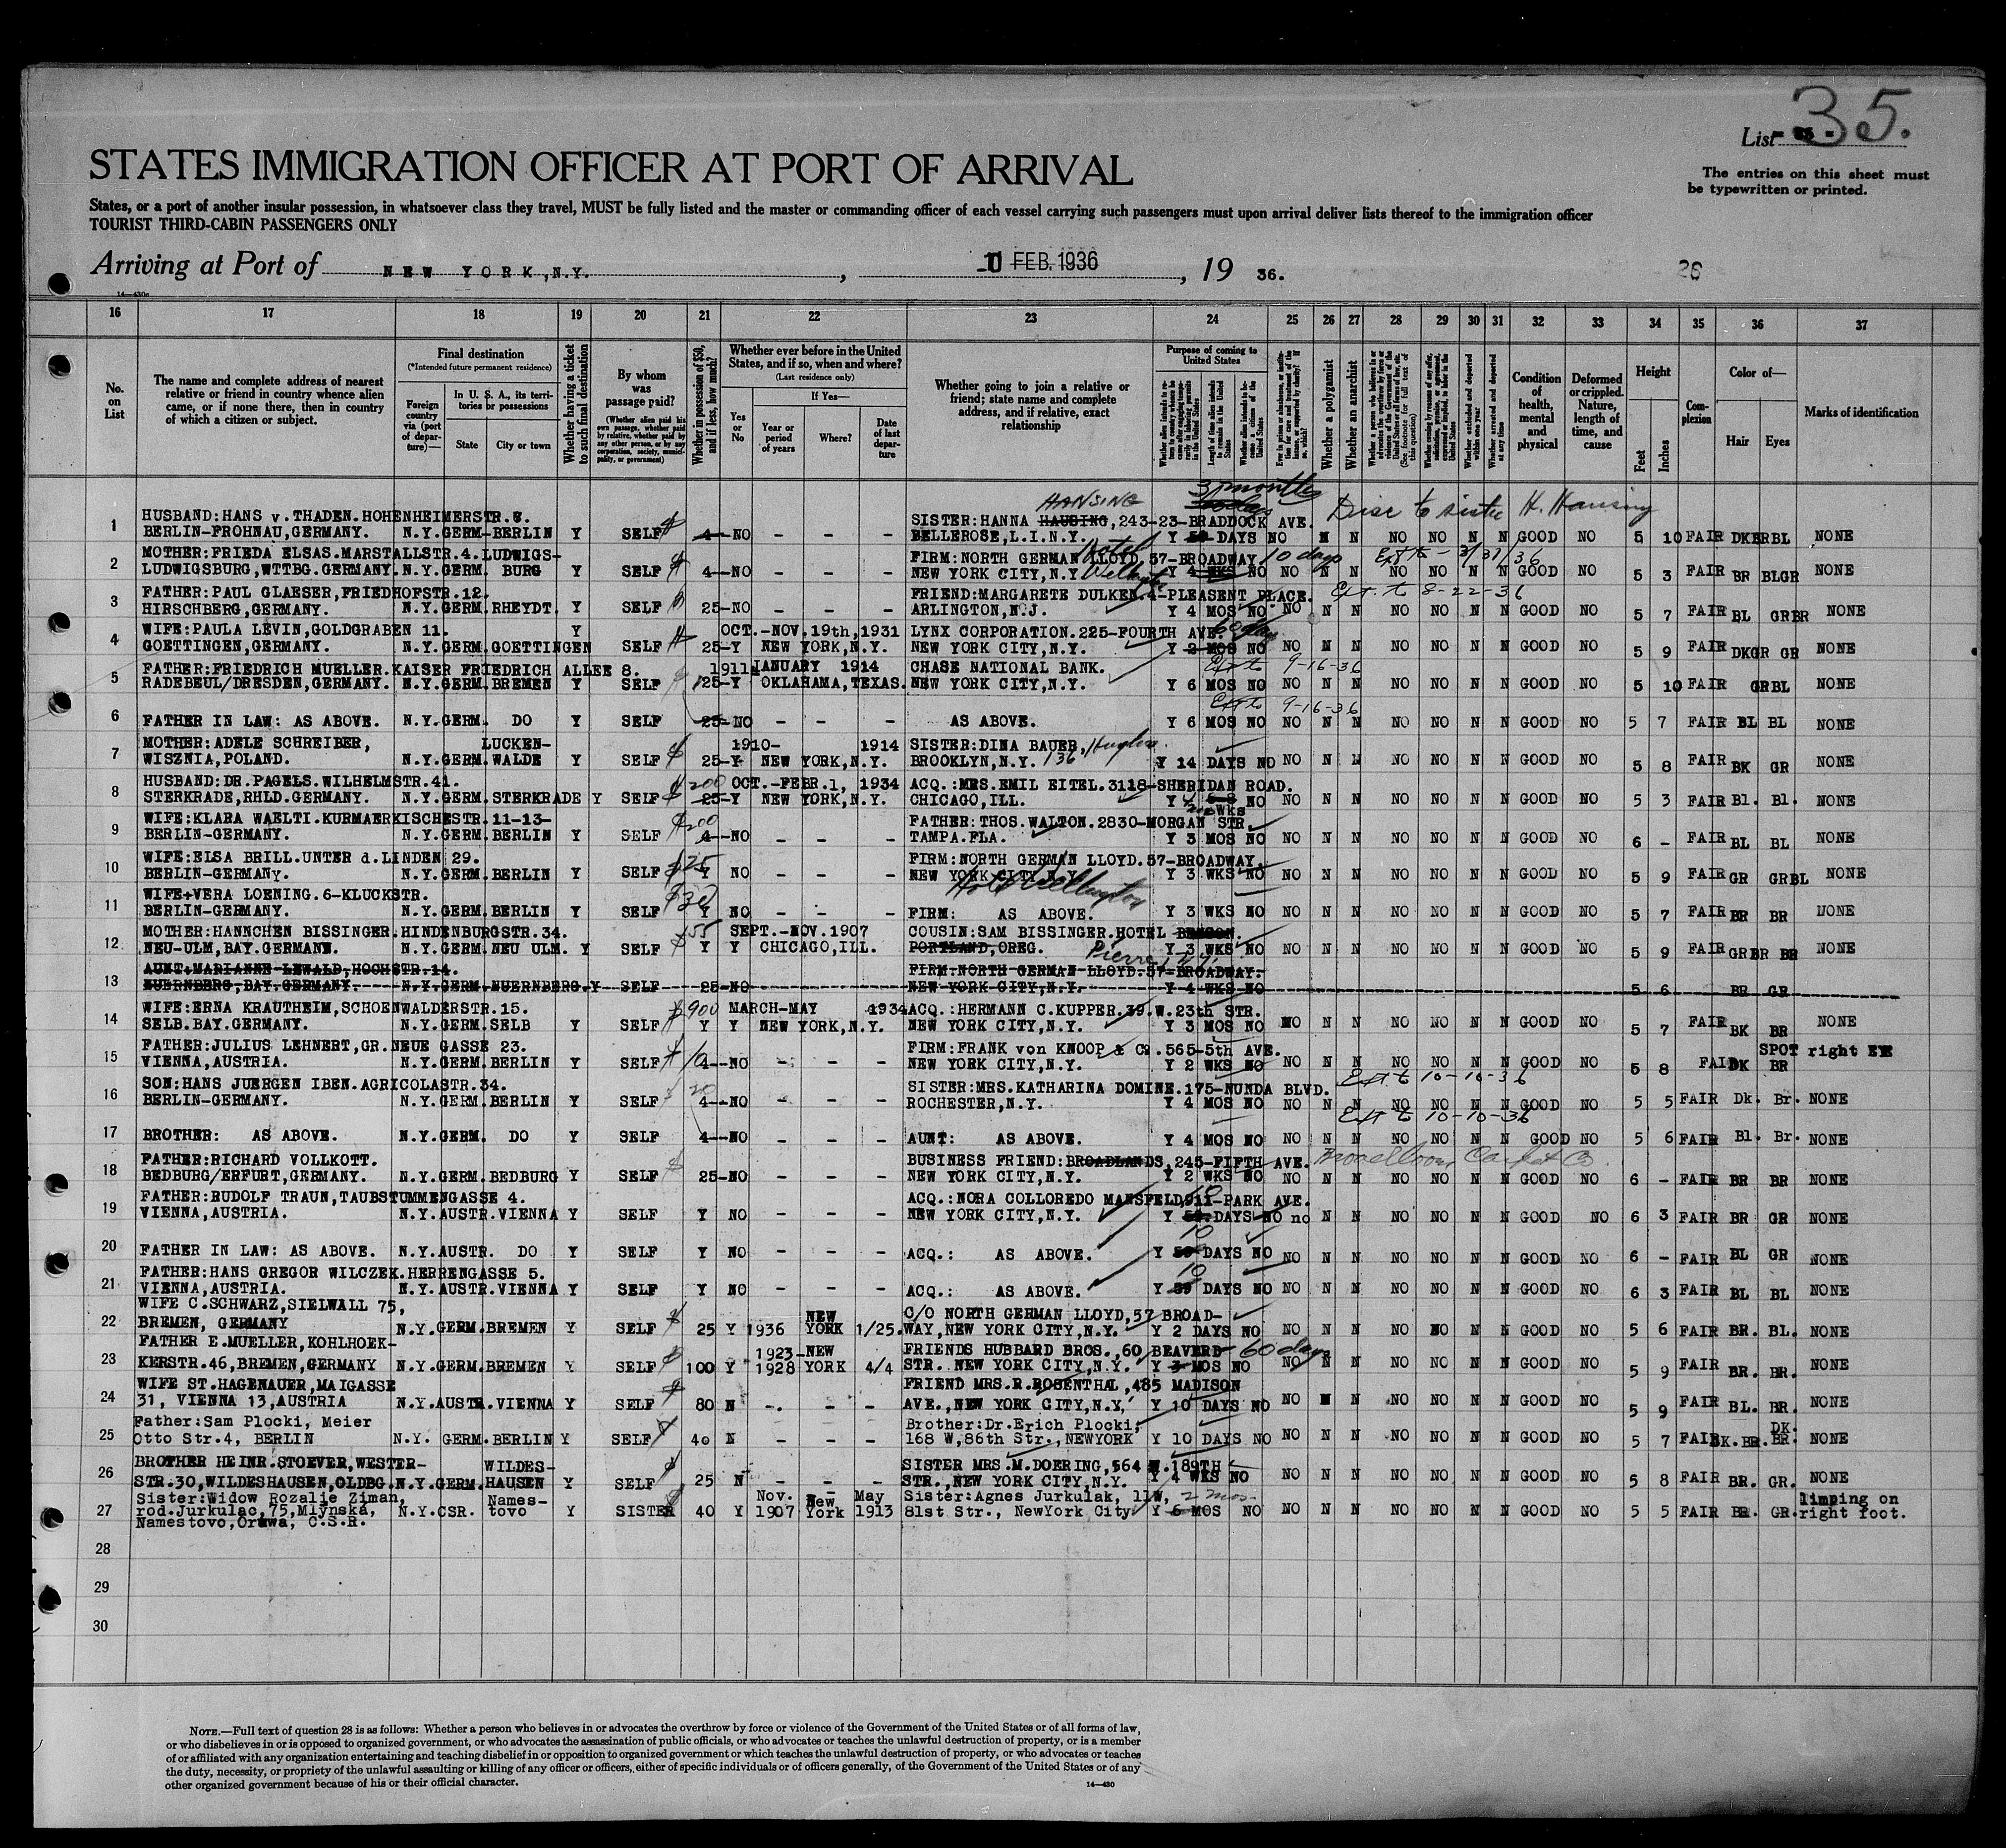 35.
List
The entries on this sheet must
be typewritten or printed.
STATES IMMIGRATION OFFICER AT PORT OF ARRIVAL
States, or a port of another insular possession, in whatsoever class they travel, MUST be fully listed and the master or commanding officer of each vessel carrying such passengers must upon arrival deliver lists thereof to the immigration officer
TOURIST THIRD-CABIN PASSENGERS ONLY
Arriving at Port of NEW YORK, N.Y. , FEB. 1936 , 19 36.
26
16 17 18 19 20 21 22 23 24 25 26 27 28 29 30 31 32 33 34 35 36 37
No. on List
The name and complete address of nearest relative or friend in country whence alien came, or if none there, then in country of which a citizen or subject.
Final destination
(*Intended future permanent residence)
Foreign country via (port of departure)—
In U. S. A., its territories or possessions
State
City or town
Whether having a ticket to such final destination
By whom was passage paid?
(Whether alien paid his own passage, whether paid by relative, whether paid by any other person, or by any corporation, society, municipality, or government)
Whether in possession of $50, and if less, how much?
Whether ever before in the United States, and if so, when and where?
(Last residence only)
Yes or No
If Yes—
Year or period of years
Where?
Date of last departure
Whether going to join a relative or friend; state name and complete address, and if relative, exact relationship
Purpose of coming to United States
Length of time alien intends to remain in the United States
Whether a polygamist
Whether an anarchist
Whether excluded and deported within one year
Whether arrested and deported at any time
Condition of health, mental and physical
Deformed or crippled. Nature, length of time, and cause
Height
Feet
Inches
Complexion
Color of—
Hair
Eyes
Marks of identification
HANSING 3 months Disc to sister H. Hansing
HUSBAND:HANS v.THADEN.HOHENHEIMERSTR. SISTER:HANNA HAUSING,243-23-BRADDOCK AVE.
1 BERLIN-FROHNAU,GERMANY. N.Y.GERM-BERLIN Y SELF $ 4 -NO - - - BELLEROSE,L.I.N.Y. Y DAYS NO N N NO NO N N GOOD NO 5 10 FAIR DKBR BL NONE
MOTHER:FRIEDA ELSAS.MARSTALLSTR.4.LUDWIGS- FIRM:NORTH GERMAN LLOYD,57-BROADWAY Hotel 10 days Ext to - 3/31/36
2 LUDWIGSBURG,WTTBG.GERMANY.N.Y.GERM. BURG Y SELF $ 4 -NO - - - NEW YORK CITY,N.Y. Y 4 WKS NO NO N N NO NO N N GOOD NO 5 3 FAIR BR BLGR NONE
FATHER:PAUL GLAESER,FRIEDHOFSTR.12. FRIEND:MARGARETE DULKEN.4-PLEASENT PLACE. Ext. to 8-22-36
3 HIRSCHBERG,GERMANY. N.Y.GERM.RHEYDT. Y SELF 25-NO - - - ARLINGTON,N.J. Y 4 MOS NO NO N N NO NO N N GOOD NO 5 7 FAIR BL GRBR NONE
WIFE:PAULA LEVIN,GOLDGRABEN 11. Y OCT.-NOV.19th,1931 LYNX CORPORATION.225-FOURTH AVE. 60 days
4 GOETTINGEN,GERMANY. N.Y.GERM.GOETTINGEN SELF 25-Y NEW YORK,N.Y. NEW YORK CITY,N.Y. Y 2 MOS NO NO N N NO NO N N GOOD NO 5 9 FAIR DKGR GR NONE
FATHER:FRIEDRICH MUELLER.KAISER FRIEDRICH ALLEE 8. 1911 JANUARY 1914 CHASE NATIONAL BANK. Ext to 9-16-36
5 RADEBEUL/DRESDEN,GERMANY. N.Y.GERM.BREMEN Y SELF 25-Y OKLAHOMA,TEXAS. NEW YORK CITY,N.Y. Y 6 MOS NO NO N N NO NO N N GOOD NO 5 10 FAIR GRBL NONE
Ext to 9-16-36
6 FATHER IN LAW: AS ABOVE. N.Y.GERM. DO Y SELF 25-NO - - - AS ABOVE. Y 6 MOS NO NO N N NO NO N N GOOD NO 5 7 FAIR BL BL NONE
MOTHER:ADELE SCHREIBER, LUCKEN- 1910- 1914 SISTER:DINA BAUER,
7 WISZNIA,POLAND. N.Y.GERM.WALDE Y SELF $ 25-Y NEW YORK,N.Y. BROOKLYN,N.Y. 136 Y 14 DAYS NO NO N N NO NO N N GOOD NO 5 8 FAIR BK GR NONE
HUSBAND:DR.PAGELS.WILHELMSTR.41. $200 OCT.-FEBR.1, 1934 ACQ:MRS.EMIL EITEL.3118-SHERIDAN ROAD.
8 STERKRADE,RHLD.GERMANY. N.Y.GERM.STERKRADE Y SELF 25-Y NEW YORK,N.Y. CHICAGO,ILL. Y NO NO N N NO NO N N GOOD NO 5 3 FAIR Bl. Bl. NONE
WIFE:KLARA WAELTI.KURMAERKISCHESTR.11-13- $200 FATHER:THOS.WALTON.2830-MORGAN STR. WKS
9 BERLIN-GERMANY. N.Y.GERM.BERLIN Y SELF 4 -NO - - - TAMPA.FLA. Y 3 MOS NO NO N N NO NO N N GOOD NO 6 - FAIR BL BL NONE
WIFE:ELSA BRILL.UNTER d.LINDEN 29. $25 FIRM:NORTH GERMAN LLOYD.57-BROADWAY.
10 BERLIN-GERMANY. N.Y.GERM.BERLIN Y SELF Y NO - - - NEW YORK CITY,N.Y. Y 3 WKS NO NO N N NO NO N N GOOD NO 5 9 FAIR GR GRBL NONE
WIFE+VERA LOENING.6-KLUCKSTR. $30 Hotel Wellington
11 BERLIN-GERMANY. N.Y.GERM.BERLIN Y SELF Y NO - - - FIRM: AS ABOVE. Y 3 WKS NO NO N N NO NO N N GOOD NO 5 7 FAIR BR BR NONE
MOTHER:HANNCHEN BISSINGER.HINDENBURGSTR.34. $55 SEPT.-NOV.1907 COUSIN:SAM BISSINGER.HOTEL
12 NEU-ULM,BAY.GERMANY. N.Y.GERM.NEU ULM. Y SELF Y Y CHICAGO,ILL. PORTLAND,OREG. Y 3 WKS NO NO N N NO NO N N GOOD NO 5 9 FAIR GRBR BR NONE
Pierre, N.Y.
AUNT+MARIANNE LEWALD,HOCHSTR.14. FIRM.NORTH GERMAN LLOYD.57-BROADWAY.
13 NUERNBERG,BAY.GERMANY. N.Y.GERM.NUERNBERG.Y SELF 25-NO NEW YORK CITY,N.Y. Y 4 WKS NO 5 6 BR GR
WIFE:ERNA KRAUTHEIM,SCHOENWALDERSTR.15. $900 MARCH-MAY 1934 ACQ.:HERMANN C.KUPPER.39.W.23th STR.
14 SELB.BAY.GERMANY. N.Y.GERM.SELB Y SELF Y Y NEW YORK,N.Y. NEW YORK CITY,N.Y. Y 3 MOS NO NO N N NO NO N N GOOD NO 5 7 FAIR BK BR NONE
FATHER:JULIUS LEHNERT,GR.NEUE GASSE 23. FIRM:FRANK von KNOOP & Co.565-5th AVE. SPOT right EYE
15 VIENNA,AUSTRIA. N.Y.GERM.BERLIN Y SELF 4 -NO - - - NEW YORK CITY,N.Y. Y 2 WKS NO NO N N NO NO N N GOOD NO 5 8 FAIR DK BR
SON:HANS JUERGEN IBEN.AGRICOLASTR.34. 20 SISTER:MRS.KATHARINA DOMINE.175-NUNDA BLVD. Ext to 10-10-36
16 BERLIN-GERMANY. N.Y.GERM.BERLIN Y SELF 4 -NO - - - ROCHESTER,N.Y. Y 4 MOS NO NO N N NO NO N N GOOD NO 5 5 FAIR Dk. Br. NONE
Ext to 10-10-36
17 BROTHER: AS ABOVE. N.Y.GERM. DO Y SELF 4 -NO - - - AUNT: AS ABOVE. Y 4 MOS NO NO N N NO NO N N GOOD NO 5 6 FAIR Bl. Br. NONE
FATHER:RICHARD VOLLKOTT. BUSINESS FRIEND:BROADLANDS,245-FIFTH AVE. Broadloom Carpet Co
18 BEDBURG/ERFURT,GERMANY. N.Y.GERM.BEDBURG Y SELF 25-NO - - - NEW YORK CITY,N.Y. Y 2 WKS NO NO N N NO NO N N GOOD NO 6 - FAIR BR BR NONE
FATHER:RUDOLF TRAUN,TAUBSTUMMENGASSE 4. ACQ.:NORA COLLOREDO MANSFELD,911-PARK AVE. 10
19 VIENNA,AUSTRIA. N.Y.AUSTR.VIENNA Y SELF Y NO - - - NEW YORK CITY,N.Y. Y DAYS NO no N N NO NO N N GOOD NO 6 3 FAIR BR GR NONE
10
20 FATHER IN LAW: AS ABOVE. N.Y.AUSTR. DO Y SELF Y NO - - - ACQ.: AS ABOVE. Y DAYS NO NO N N NO NO N N GOOD NO 6 - FAIR BL GR NONE
FATHER:HANS GREGOR WILCZEK.HERRENGASSE 5. 10
21 VIENNA,AUSTRIA. N.Y.AUSTR.VIENNA Y SELF Y NO - - - ACQ.: AS ABOVE. Y DAYS NO NO N N NO NO N N GOOD NO 6 3 FAIR BL BL NONE
WIFE C.SCHWARZ,SIELWALL 75, NEW C/O NORTH GERMAN LLOYD,57 BROAD-
22 BREMEN, GERMANY N.Y.GERM.BREMEN Y SELF $ 25 Y 1936 YORK 1/25. WAY,NEW YORK CITY,N.Y. Y 2 DAYS NO NO N N NO NO N N GOOD NO 5 6 FAIR BR. BL. NONE
FATHER E.MUELLER,KOHLHOEK- 1923-NEW FRIENDS HUBBARD BROS.,60 BEAVER 60 days
23 KERSTR.46,BREMEN,GERMANY N.Y.GERM.BREMEN Y SELF $ 100 Y 1928 YORK 4/4 STR. NEW YORK CITY,N.Y. Y 3 MOS NO NO N N NO NO N N GOOD NO 5 9 FAIR BR. BR. NONE
WIFE ST.HAGENAUER,MAIGASSE FRIEND MRS.R.ROSENTHAL,485 MADISON
24 31, VIENNA 13,AUSTRIA N.Y.AUSTR.VIENNA Y SELF $ 80 N -. - - AVE.,NEW YORK CITY,N.Y, Y 10 DAYS NO NO N N NO NO N N GOOD NO 5 9 FAIR BL. BR. NONE
Father:Sam Plocki, Meier Brother:Dr.Erich Plocki, DK.
25 Otto Str.4, BERLIN N.Y. GERM.BERLIN Y SELF 40 N - - - 168 W,86th Str.,NEWYORK Y 10 DAYS NO NO N N NO NO N N GOOD NO 5 7 FAIR DK.BR. BR. NONE
BROTHER HEINR.STOEVER,WESTER- WILDES- SISTER MRS.M.DOERING,564 W.189TH
26 STR.30,WILDESHAUSEN,OLDBG.N.Y.GERM.HAUSEN Y SELF 25 N - - - STR.,NEW YORK CITY,N.Y. Y 4 WKS NO NO N N NO NO N N GOOD NO 5 8 FAIR BR. GR. NONE
Sister:Widow Rozalie Ziman, Names- Nov. New May Sister:Agnes Jurkulak, 11W, 2 mos limping on
27 rod.Jurkulac,75,Mlynská, N.Y.CSR. tovo Y SISTER 40 Y 1907 York 1913 81st Str., NewYork City Y 6 MOS NO NO N N NO NO N N GOOD NO 5 5 FAIR BR. GR. right foot.
Namestovo,Orawa, C.S.R.
28
29
30
NOTE.—Full text of question 28 is as follows: Whether a person who believes in or advocates the overthrow by force or violence of the Government of the United States or of all forms of law,
or who disbelieves in or is opposed to organized government, or who advocates the assassination of public officials, or who advocates or teaches the unlawful destruction of property, or is a member
of or affiliated with any organization entertaining and teaching disbelief in or opposition to organized government or which teaches the unlawful destruction of property, or who advocates or teaches
the duty, necessity, or propriety of the unlawful assaulting or killing of any officer or officers, either of specific individuals or of officers generally, of the Government of the United States or of any
other organized government because of his or their official character.
14—430